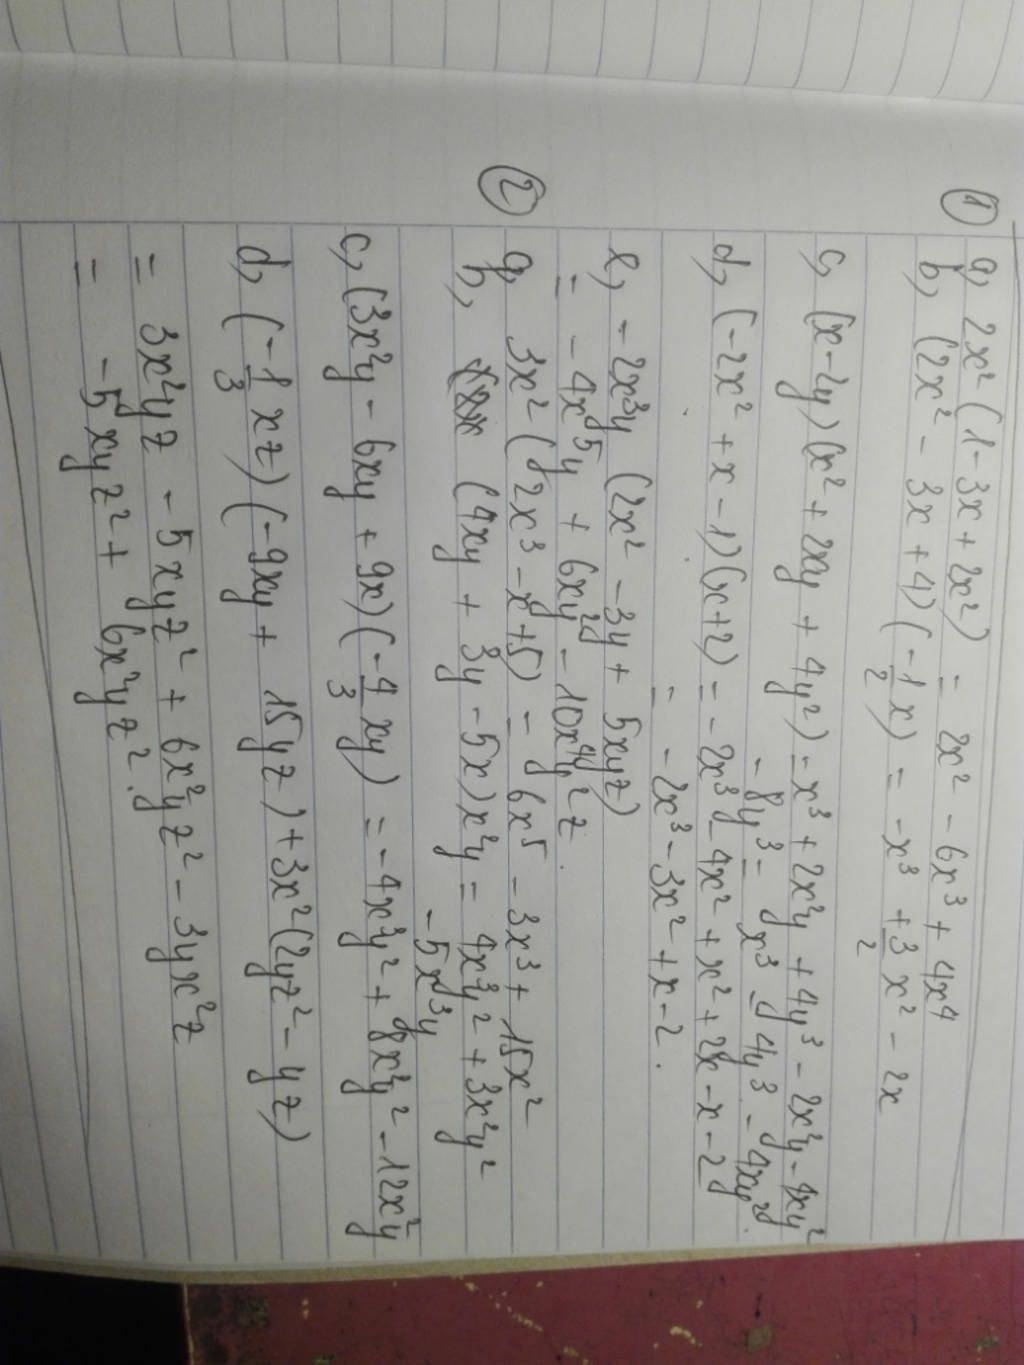 ① a, 2x² (1 - 3x + 2x²) = 2x² - 6x³ + 4x⁴
b, (2x² - 3x + 4) (-1/2 x) = -x³ + 3/2 x² - 2x
c, (x - 2y) (x² + 2xy + 4y²) = x³ + 2x²y + 4y³ - 2x²y - 4xy²
- 8y³ = x³ - 4y³ - 4xy².
d, (-2x² + x - 1) (x + 2) = -2x³ - 4x² + x² + 2x - x - 2
= -2x³ - 3x² + x - 2.
e, -2x³y (2x² - 3y + 5xyz)
= -4x⁵y + 6xy² - 10x⁴y²z.
② a, 3x² (2x³ - x + 5) = 6x⁵ - 3x³ + 15x²
b, (4xy + 3y - 5x) x²y = 4x³y² + 3x²y²
- 5x³y
c, (3x²y - 6xy + 9x) (-4/3 xy) = -4x³y² + 8x²y² - 12x²y
d, (-1/3 xz) (-9xy + 15yz) + 3x² (2yz² - yz)
= 3x²yz - 5xyz² + 6x²yz² - 3yx²z
= -5xyz² + 6x²yz².